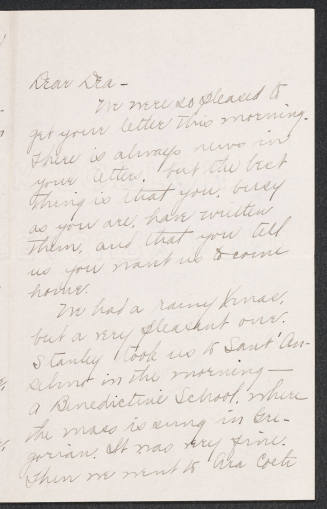 Dear Dea –
We were so pleased to
get your letter this morning.
There is always news in
your letters, but the best
thing is that you, busy
as you are, have written
them, and that you tell
us you want us to come
home.
We had a rainy Xmas,
but a very pleasant one.
Stanley took us to Sant' An-
selmo in the morning —
a Benedictine School, where
the mass is sung in Gre-
gorian. It was very fine.
Then we went to Ara Coeli